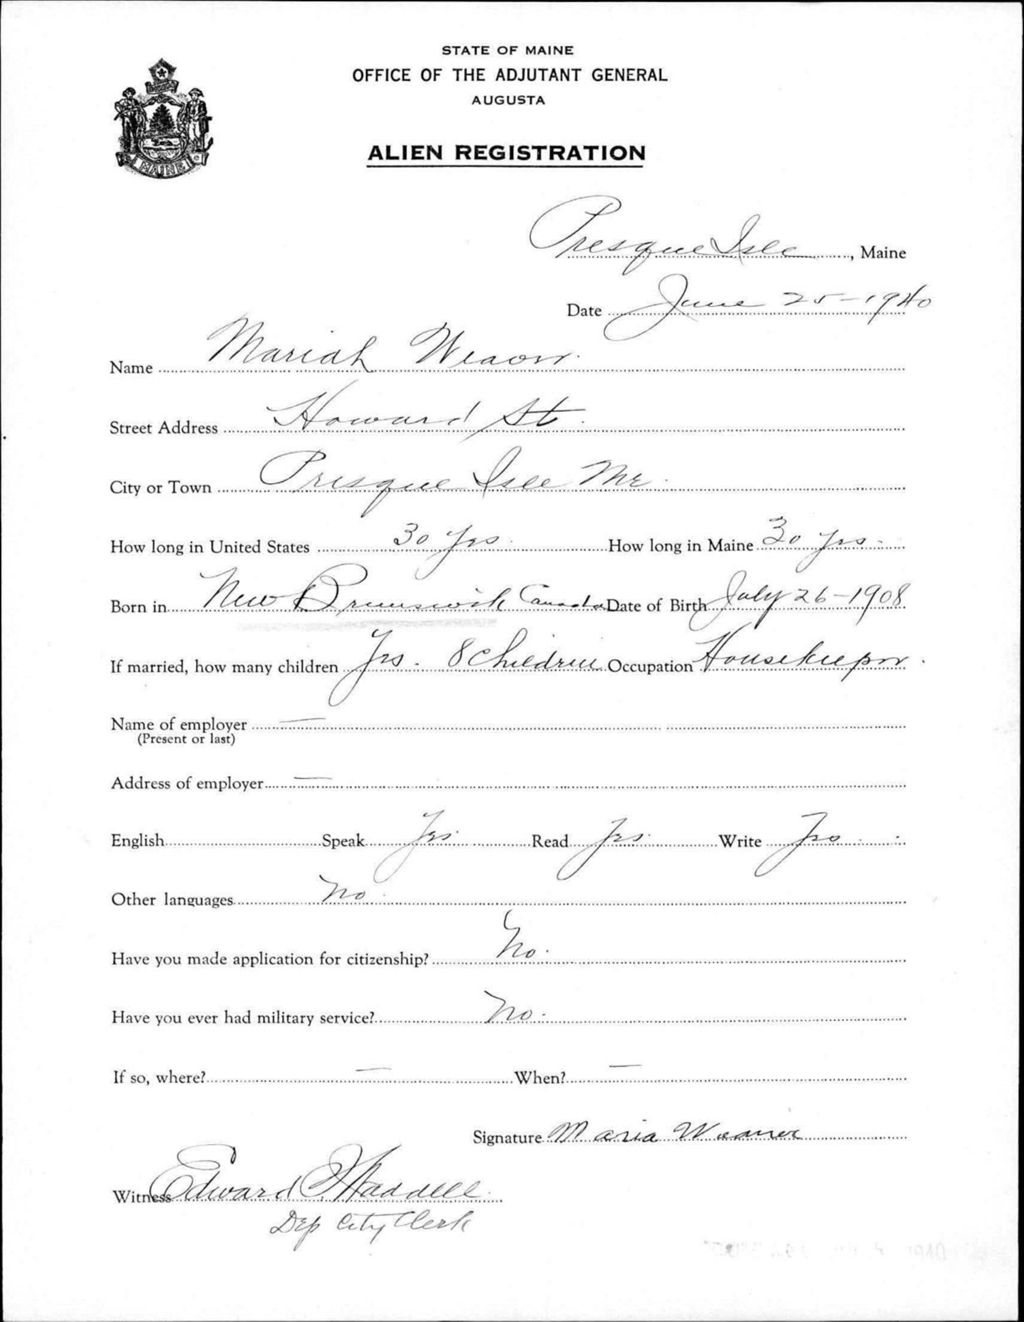 STATE OF MAINE
OFFICE OF THE ADJUTANT GENERAL
AUGUSTA
ALIEN REGISTRATION
MAINE
Presque Isle, Maine
Date June 25-1940
Name Mariah Weaver
Street Address Howard St.
City or Town Presque Isle Me.
How long in United States 30 yrs. How long in Maine 30 yrs.
Born in New Brunswick Canada Date of Birth July 26-1908
If married, how many children Yes. 8 Children Occupation Housekeeper.
Name of employer —
(Present or last)
Address of employer —
English Speak Yes. Read Yes. Write Yes
Other languages No.
Have you made application for citizenship? No.
Have you ever had military service? No.
If so, where? — When? —
Signature Maria Weaver
Witness Edward Waddell
Dep City Clerk